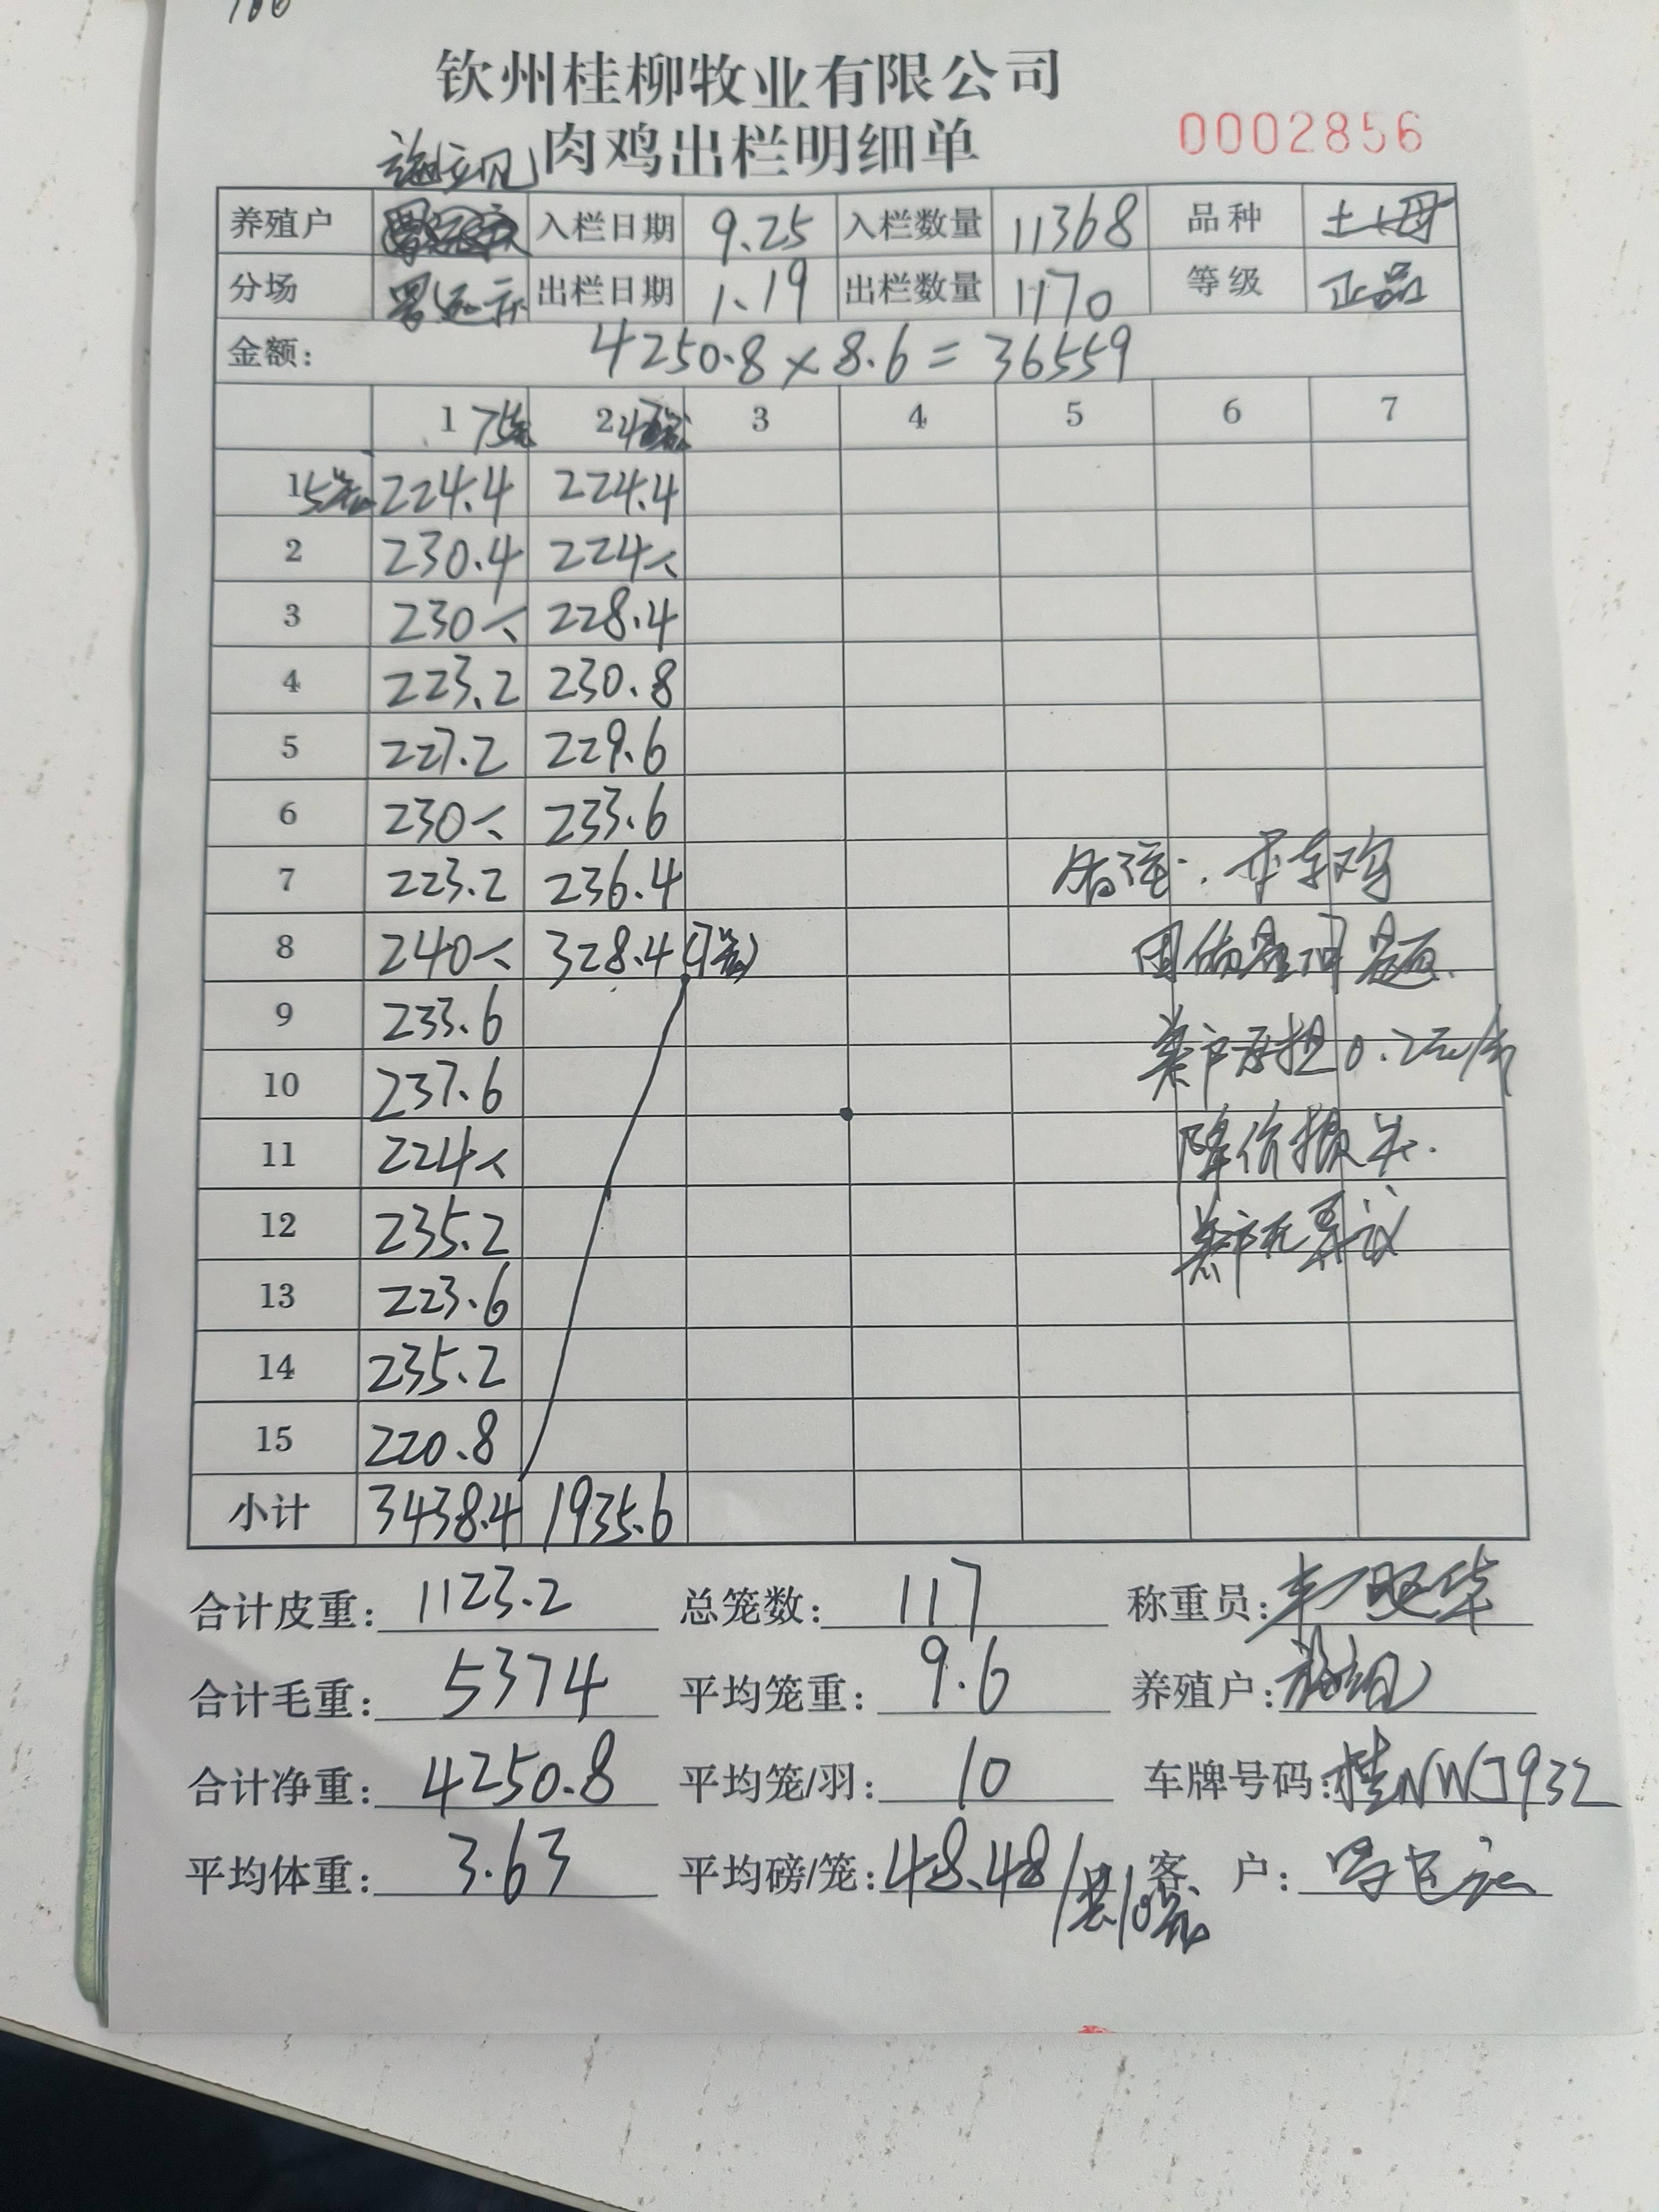 钦州桂柳牧业有限公司
肉鸡出栏明细单 0002856
养殖户 入栏日期 9.25 入栏数量 11368 品种 土母
分场 出栏日期 1.19 出栏数量 1170 等级 正品
金额: 4250.8 × 8.6 = 36559
1 75笼 2 3 4 5 6 7
1 5笼 224.4 224.4
2 230.4 224
3 230 228.4
4 223.2 230.8
5 227.2 229.6
6 230 233.6
7 223.2 236.4
8 240 328.4 (7笼)
9 233.6
10 237.6
11 224
12 235.2
13 223.6
14 235.2
15 220.8
备注:
因 质量问题
养户承担0.2元/斤
降价损失.
养户无异议
小计 3438.4 1935.6
合计皮重: 1123.2 总笼数: 117 称重员:
合计毛重: 5374 平均笼重: 9.6 养殖户:
合计净重: 4250.8 平均笼/羽: 10 车牌号码: 桂NWJ932
平均体重: 3.63 平均磅/笼: 48.48 客 户: